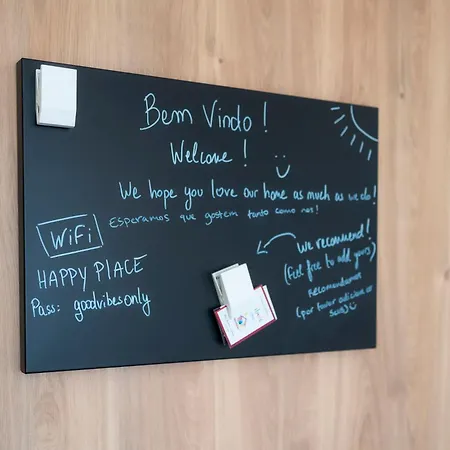 Bem Vindo!
Welcome!
We hope you love our home as much as we do!
Esperamos que gostem tanto como nós!
WiFi
HAPPY PLACE
Pass: goodvibesonly
We recommend!
(feel free to add yours)
Recomendamos
(por favor adicione as
suas)